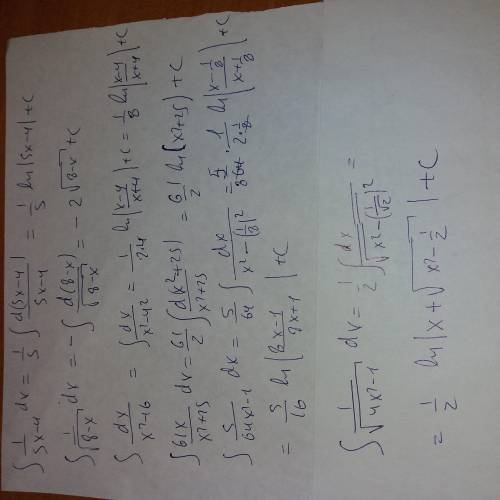 ∫ 1/(5x-4) dx = 1/5 ∫ d(5x-4)/(5x-4) = 1/5 ln|5x-4| + C
∫ 1/√(8-x) dx = -∫ d(8-x)/√(8-x) = -2√(8-x) + C
∫ dx/(x²-16) = ∫ dx/(x²-4²) = 1/(2·4) ln|(x-4)/(x+4)| + C = 1/8 ln|(x-4)/(x+4)| + C
∫ 61x/(x²+25) dx = 61/2 ∫ d(x²+25)/(x²+25) = 61/2 ln(x²+25) + C
∫ 5/(64x²-1) dx = 5/64 ∫ dx/(x²-(1/8)²) = 5/64 · 1/(2·1/8) ln|(x-1/8)/(x+1/8)| + C
= 5/16 ln|(8x-1)/(8x+1)| + C
∫ 1/√(4x²-1) dx = 1/2 ∫ dx/√(x²-(1/√2)²) =
= 1/2 ln|x+√(x²-1/2)| + C